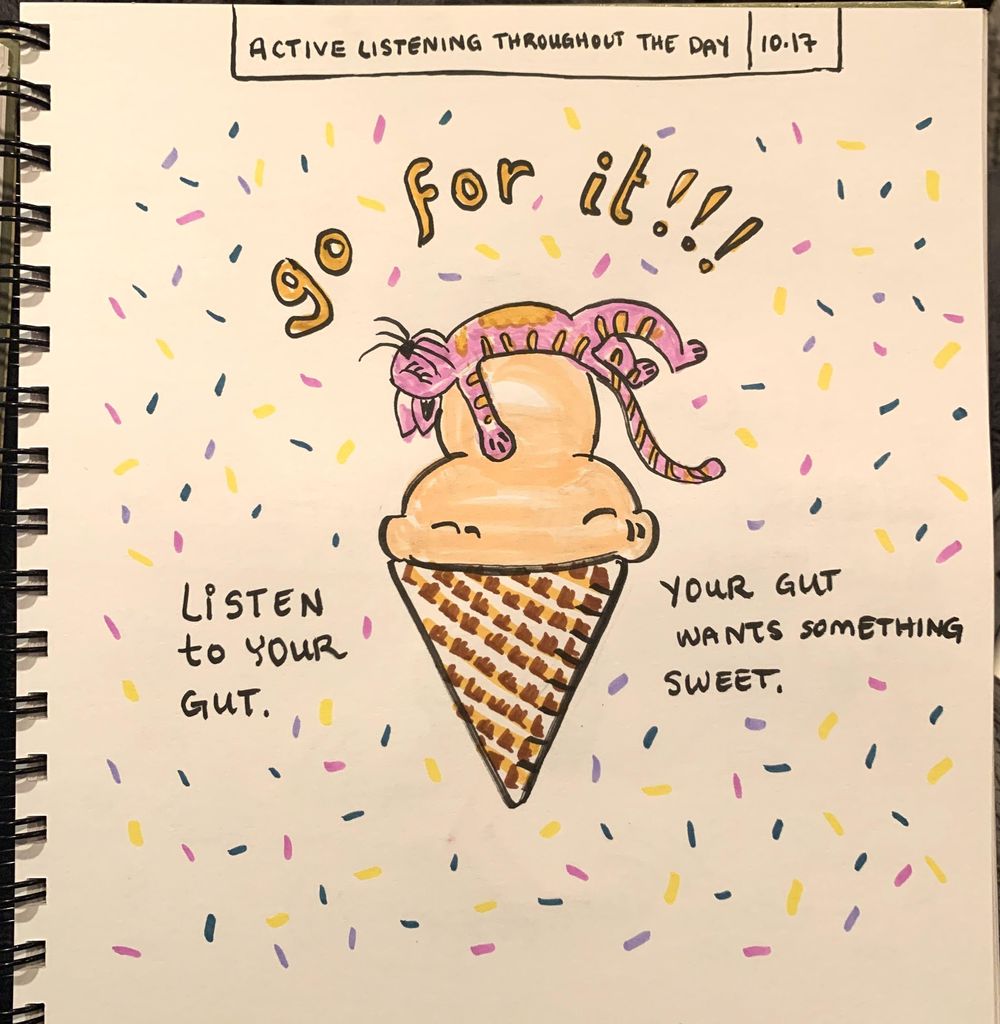 ACTIVE LISTENING THROUGHOUT THE DAY 10.17
go for it!!!
LiSTEN
to YOUR
GUT.
YOUR GUT
WANTS SOMETHING
SWEET.